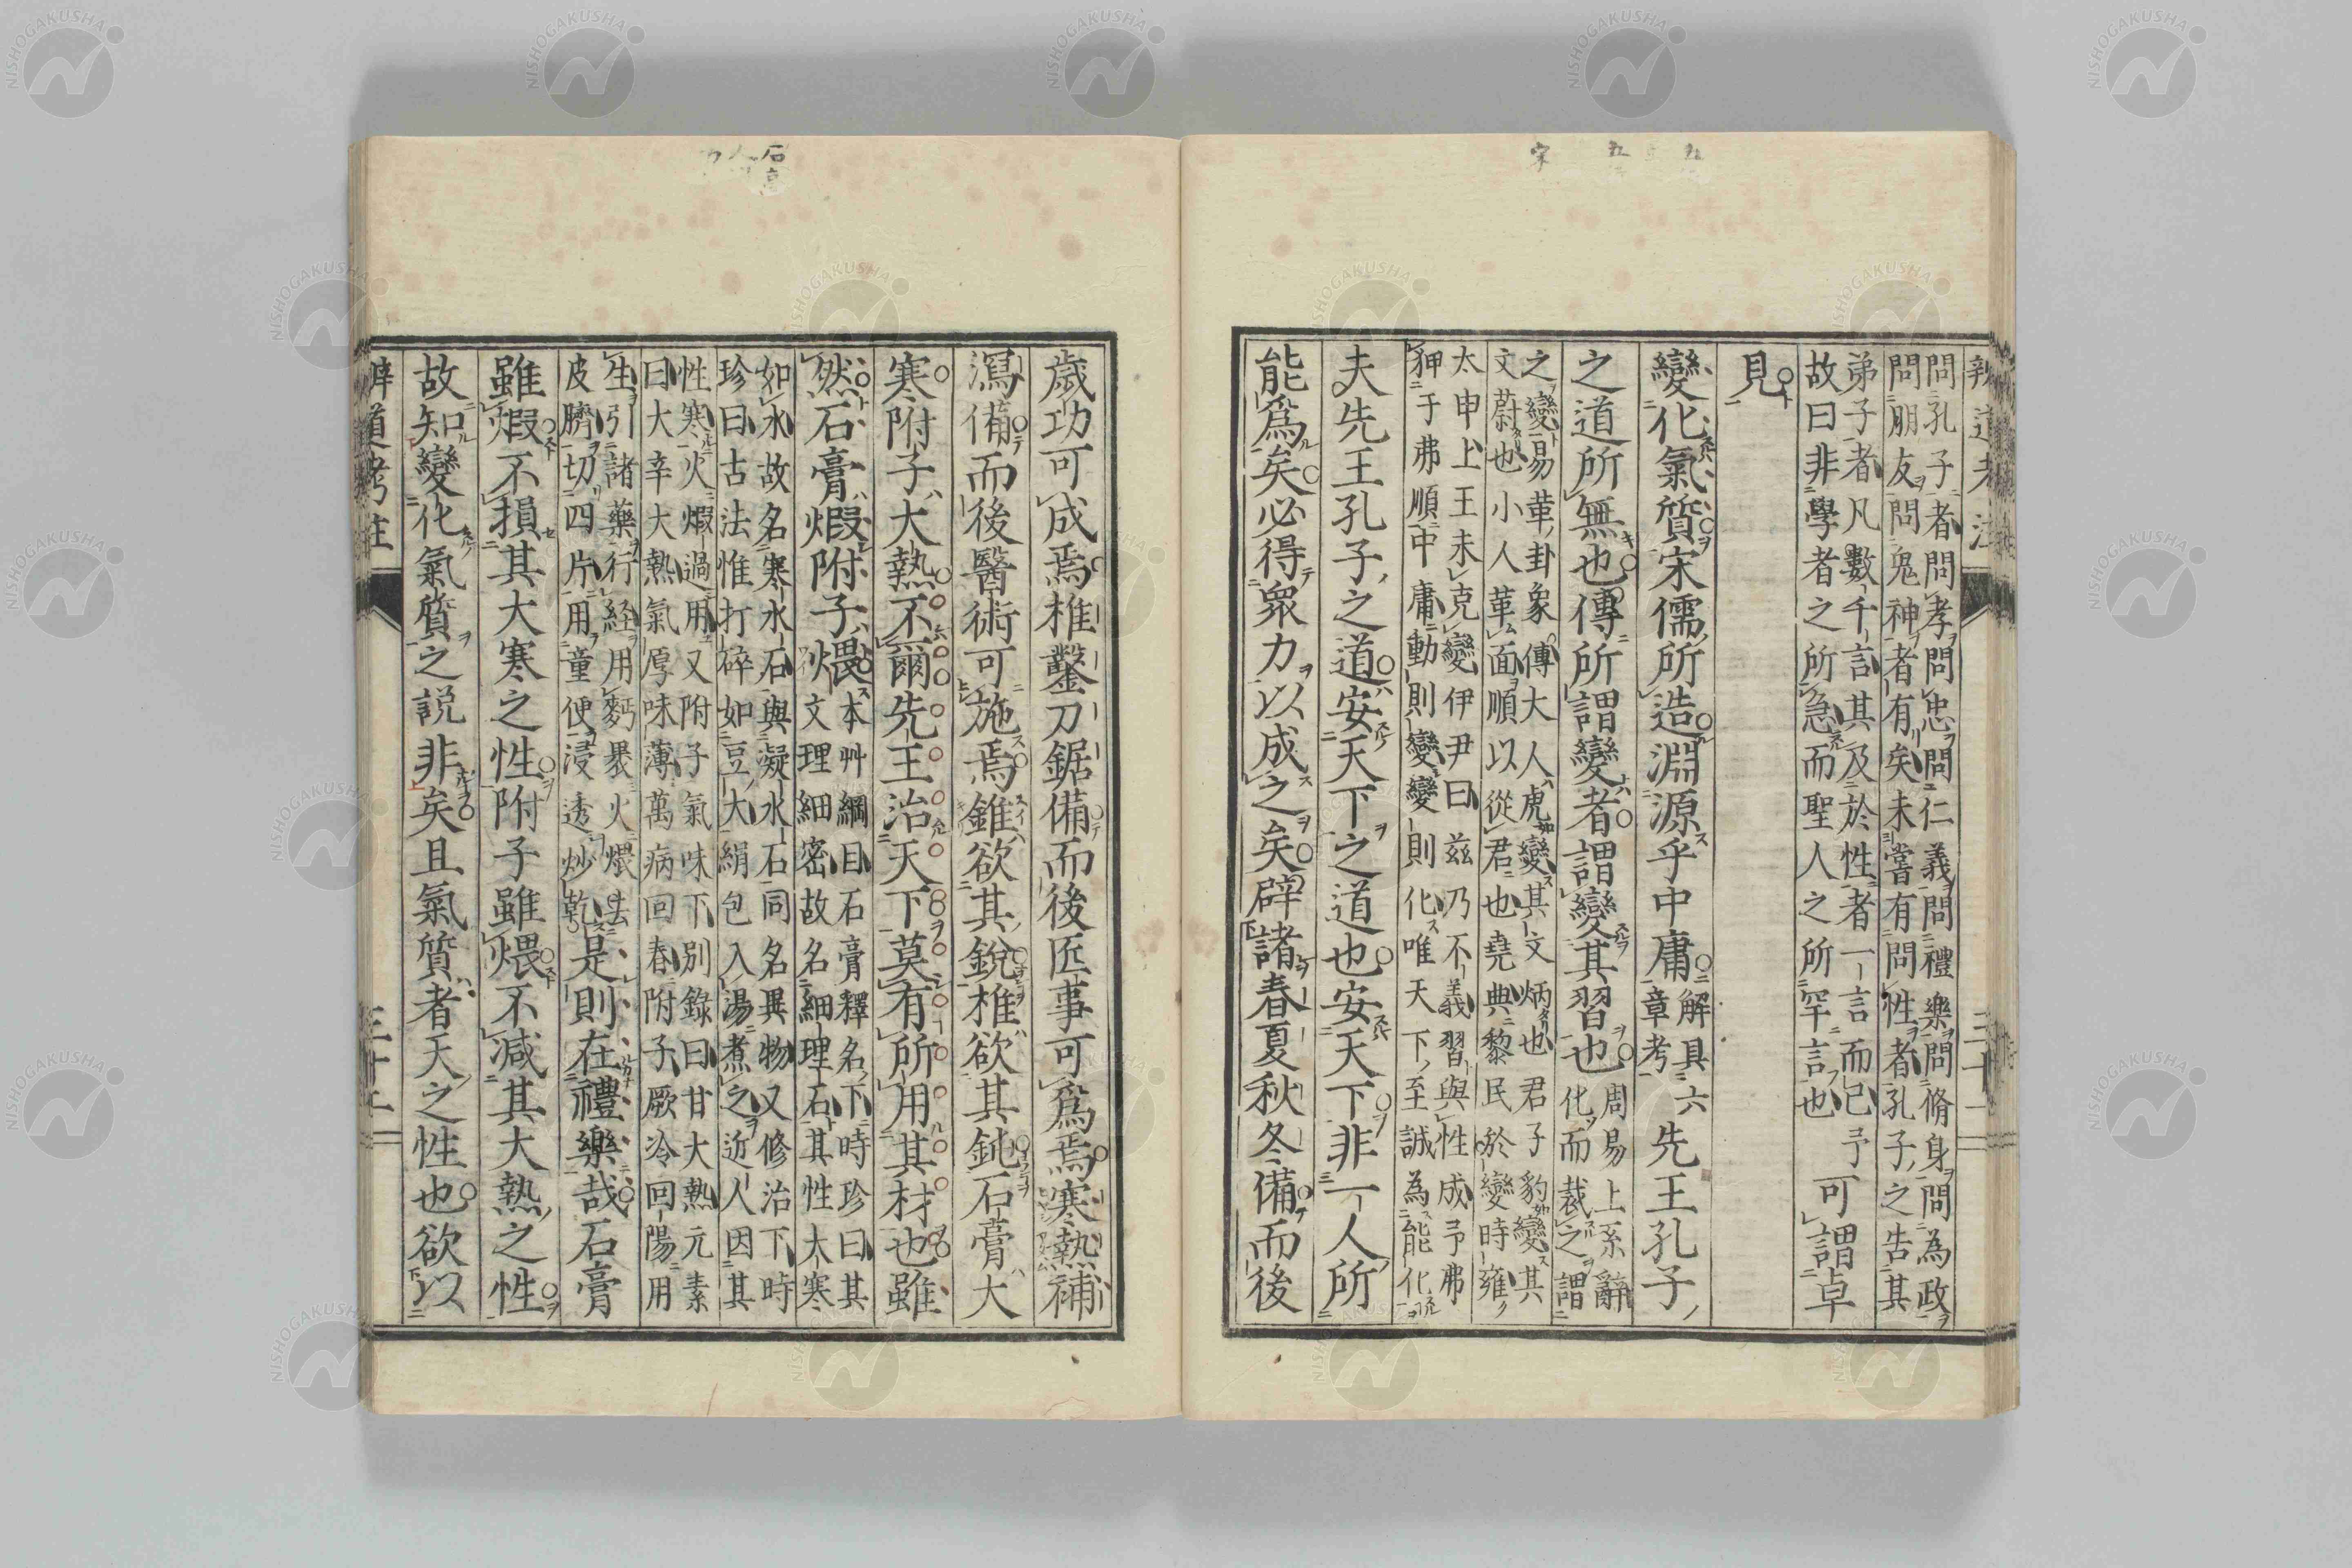 辨道考注
問孔子者問孝問忠問仁義問禮樂問脩身問為政
問朋友問鬼神者有矣未嘗有問性者孔子之告其
弟子者凡數千言其及於性者一言而已予
故曰非學者之所急而聖人之所罕言也
可謂卓
見
變化氣質宋儒所造淵源乎中庸
解具六
章考
先王孔子
之道所無也傳所謂變者謂變其習也
周易上系辭
化而裁之謂
之變易革卦象傳大人虎變其文炳也君子豹變其
文蔚也小人革面順以從君也堯典黎民於變時雍
太甲上王未克變伊尹曰茲乃不義習與性成予弗
狎于弗順中庸動則變變則化唯天下至誠為能化
夫先王孔子之道安天下之道也安天下非一人所
能爲矣必得衆力以成之矣辟諸春夏秋冬備而後
歲功可成焉椎鑿刀鋸備而後匠事可爲焉寒熱補
瀉備而後醫術可施焉錐欲其銳椎欲其鈍石膏大
寒附子大熱不爾先王治天下莫有所用其材也雖
然石膏煆附子煨
本艸綱目石膏釋名下時珍曰其
文理細密故名細理石其性大寒
如水故名寒水石與凝水石同名異物又修治下時
珍曰古法惟打碎如豆大絹包入湯煮之近人因其
性寒火煆過用又附子氣味下別錄曰甘大熱元素
曰大辛大熱氣厚味薄萬病回春附子厥冷回陽用
生引諸藥行経用麪裹火煨法
皮臍切四片用童便浸透炒乾
是則在禮樂哉石膏
雖煆不損其大寒之性附子雖煨不減其大熱之性
故知變化氣質之説非矣且氣質者天之性也欲以
辨道考注
三十二